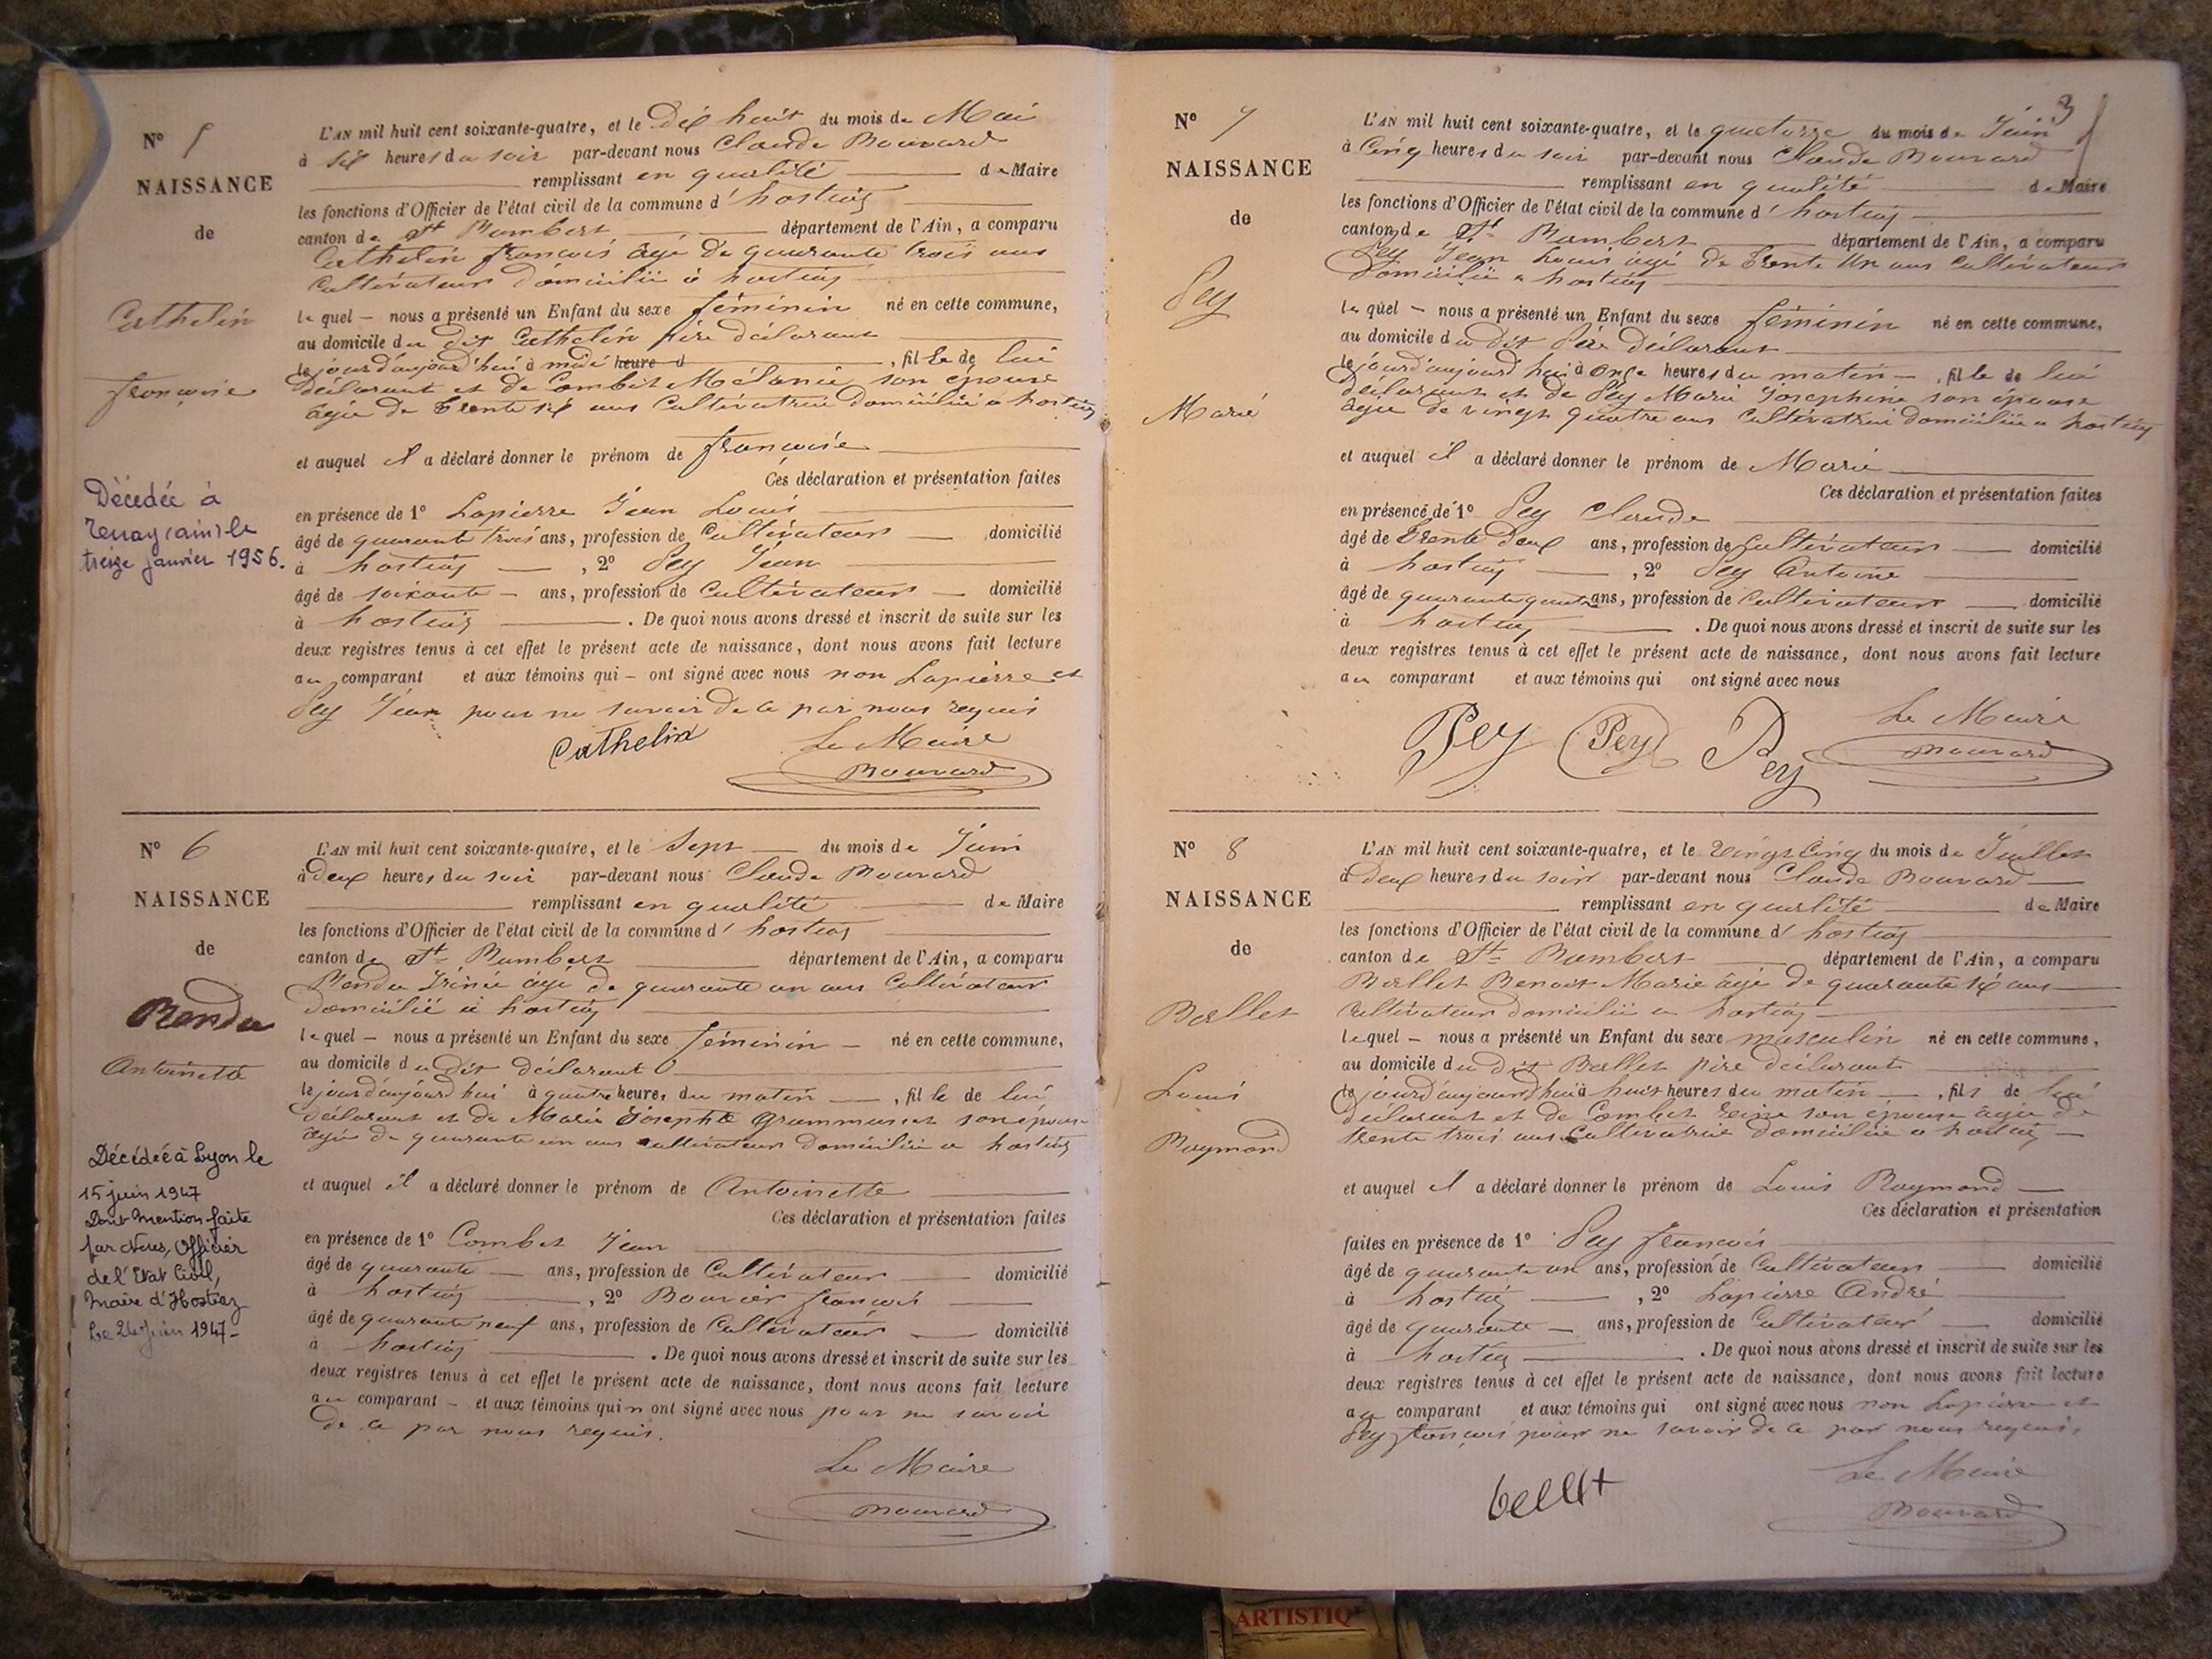 N° 5
NAISSANCE
de
Cathelin
françoise
Décédée à
Tenay (ain) le
treize janvier 1956.
L'AN mil huit cent soixante-quatre, et le Dix huit du mois de Mai
à six heures du soir par-devant nous Claude Bouvard
remplissant en qualité de Maire
les fonctions d'Officier de l'état civil de la commune d'hostiaz
canton de St Rambert département de l'Ain, a comparu
Cathelin françois âgé de quarante trois ans
Cultivateur domicilié à hostiaz
lequel – nous a présenté un Enfant du sexe féminin né en cette commune,
au domicile du dit Cathelin père déclarant
le jour d'aujourd'hui à midi heure d , fille de lui
déclarant et de Combet Mélanie son épouse
âgée de trente six ans Cultivatrice domiciliée a hostiaz
et auquel il a déclaré donner le prénom de françoise
Ces déclaration et présentation faites
en présence de 1° Lapierre Jean Louis
âgé de quarante trois ans, profession de Cultivateur domicilié
à hostiaz , 2° Pey Jean
âgé de soixante – ans, profession de Cultivateur domicilié
à hostiaz . De quoi nous avons dressé et inscrit de suite sur les
deux registres tenus à cet effet le présent acte de naissance, dont nous avons fait lecture
au comparant et aux témoins qui – ont signé avec nous non Lapierre et
Pey Jean pour ne savoir de ce par nous requis
Cathelin Le Maire
Bouvard
N° 6
NAISSANCE
de
Rendu
Antoinette
Décédée à Lyon le
15 juin 1947
Dont Mention faite
par Nous, Officier
de l'Etat Civil,
Maire d'Hostiaz
Le 26 Juin 1947-
L'AN mil huit cent soixante-quatre, et le Sept du mois de Juin
à deux heures du soir par-devant nous Claude Bouvard
remplissant en qualité de Maire
les fonctions d'Officier de l'état civil de la commune d'hostiaz
canton de St Rambert département de l'Ain, a comparu
Rendu Irénée âgé de quarante un ans Cultivateur
domicilié à hostiaz
lequel – nous a présenté un Enfant du sexe féminin – né en cette commune,
au domicile du dit déclarant
le jour d'aujourd'hui à quatre heures du matin , fille de lui
déclarant et de Marie Josephte Grammusset son épouse
âgée de quarante un ans cultivateur domiciliée a hostiaz
et auquel il a déclaré donner le prénom de Antoinette
Ces déclaration et présentation faites
en présence de 1° Combet Jean
âgé de quarante ans, profession de Cultivateur domicilié
à hostiaz , 2° françois
âgé de quarante neuf ans, profession de Cultivateur domicilié
à hostiaz . De quoi nous avons dressé et inscrit de suite sur les
deux registres tenus à cet effet le présent acte de naissance, dont nous avons fait lecture
au comparant – et aux témoins qui n ont signé avec nous pour ne savoir
de ce par nous requis.
Le Maire
Bouvard
3
N° 7
NAISSANCE
de
Pey
Marie
L'AN mil huit cent soixante-quatre, et le quatorze du mois de Juin
à Cinq heures du soir par-devant nous Claude Bouvard
remplissant en qualité de Maire
les fonctions d'Officier de l'état civil de la commune d'hostiaz
canton de St Rambert département de l'Ain, a comparu
Pey Jean Louis âgé de trente un ans Cultivateur
domicilié a hostiaz
lequel – nous a présenté un Enfant du sexe féminin né en cette commune,
au domicile du dit Père déclarant
le jour d'aujourd'hui à onze heures du matin – , fille de lui
déclarant et de Pey Marie Josephine son épouse
âgée de vingt quatre ans Cultivatrice domiciliée a hostiaz
et auquel il a déclaré donner le prénom de Marie
Ces déclaration et présentation faites
en présence de 1° Pey Claude
âgé de trente deux ans, profession de Cultivateur domicilié
à hostiaz , 2° Pey Antoine
âgé de quarante quatre ans, profession de Cultivateur domicilié
à hostiaz . De quoi nous avons dressé et inscrit de suite sur les
deux registres tenus à cet effet le présent acte de naissance, dont nous avons fait lecture
au comparant et aux témoins qui ont signé avec nous
Pey Pey Pey Le Maire
Bouvard
N° 8
NAISSANCE
de
Bellet
Louis
Raymond
L'AN mil huit cent soixante-quatre, et le vingt Cinq du mois de Juillet
à deux heures du soir par-devant nous Claude Bouvard
remplissant en qualité de Maire
les fonctions d'Officier de l'état civil de la commune d'hostiaz
canton de St Rambert département de l'Ain, a comparu
Bellet Benoit Marie âgé de quarante six ans
Cultivateur domicilié a hostiaz
lequel – nous a présenté un Enfant du sexe masculin né en cette commune,
au domicile du dit Bellet père déclarant
le jour d'aujourd'hui à huit heures du matin – , fils de lui
déclarant et de Combet son épouse âgée de
trente trois ans Cultivatrice domiciliée a hostiaz –
et auquel il a déclaré donner le prénom de Louis Raymond
Ces déclaration et présentation
faites en présence de 1° Pey françois
âgé de quarante un ans, profession de Cultivateur domicilié
à hostiaz , 2° Lapierre André
âgé de quarante – ans, profession de Cultivateur domicilié
à hostiaz . De quoi nous avons dressé et inscrit de suite sur les
deux registres tenus à cet effet le présent acte de naissance, dont nous avons fait lecture
au comparant et aux témoins qui ont signé avec nous non Lapierre et
Pey françois pour ne savoir de ce par nous requis.
bellet Le Maire
Bouvard
ARTISTIQ